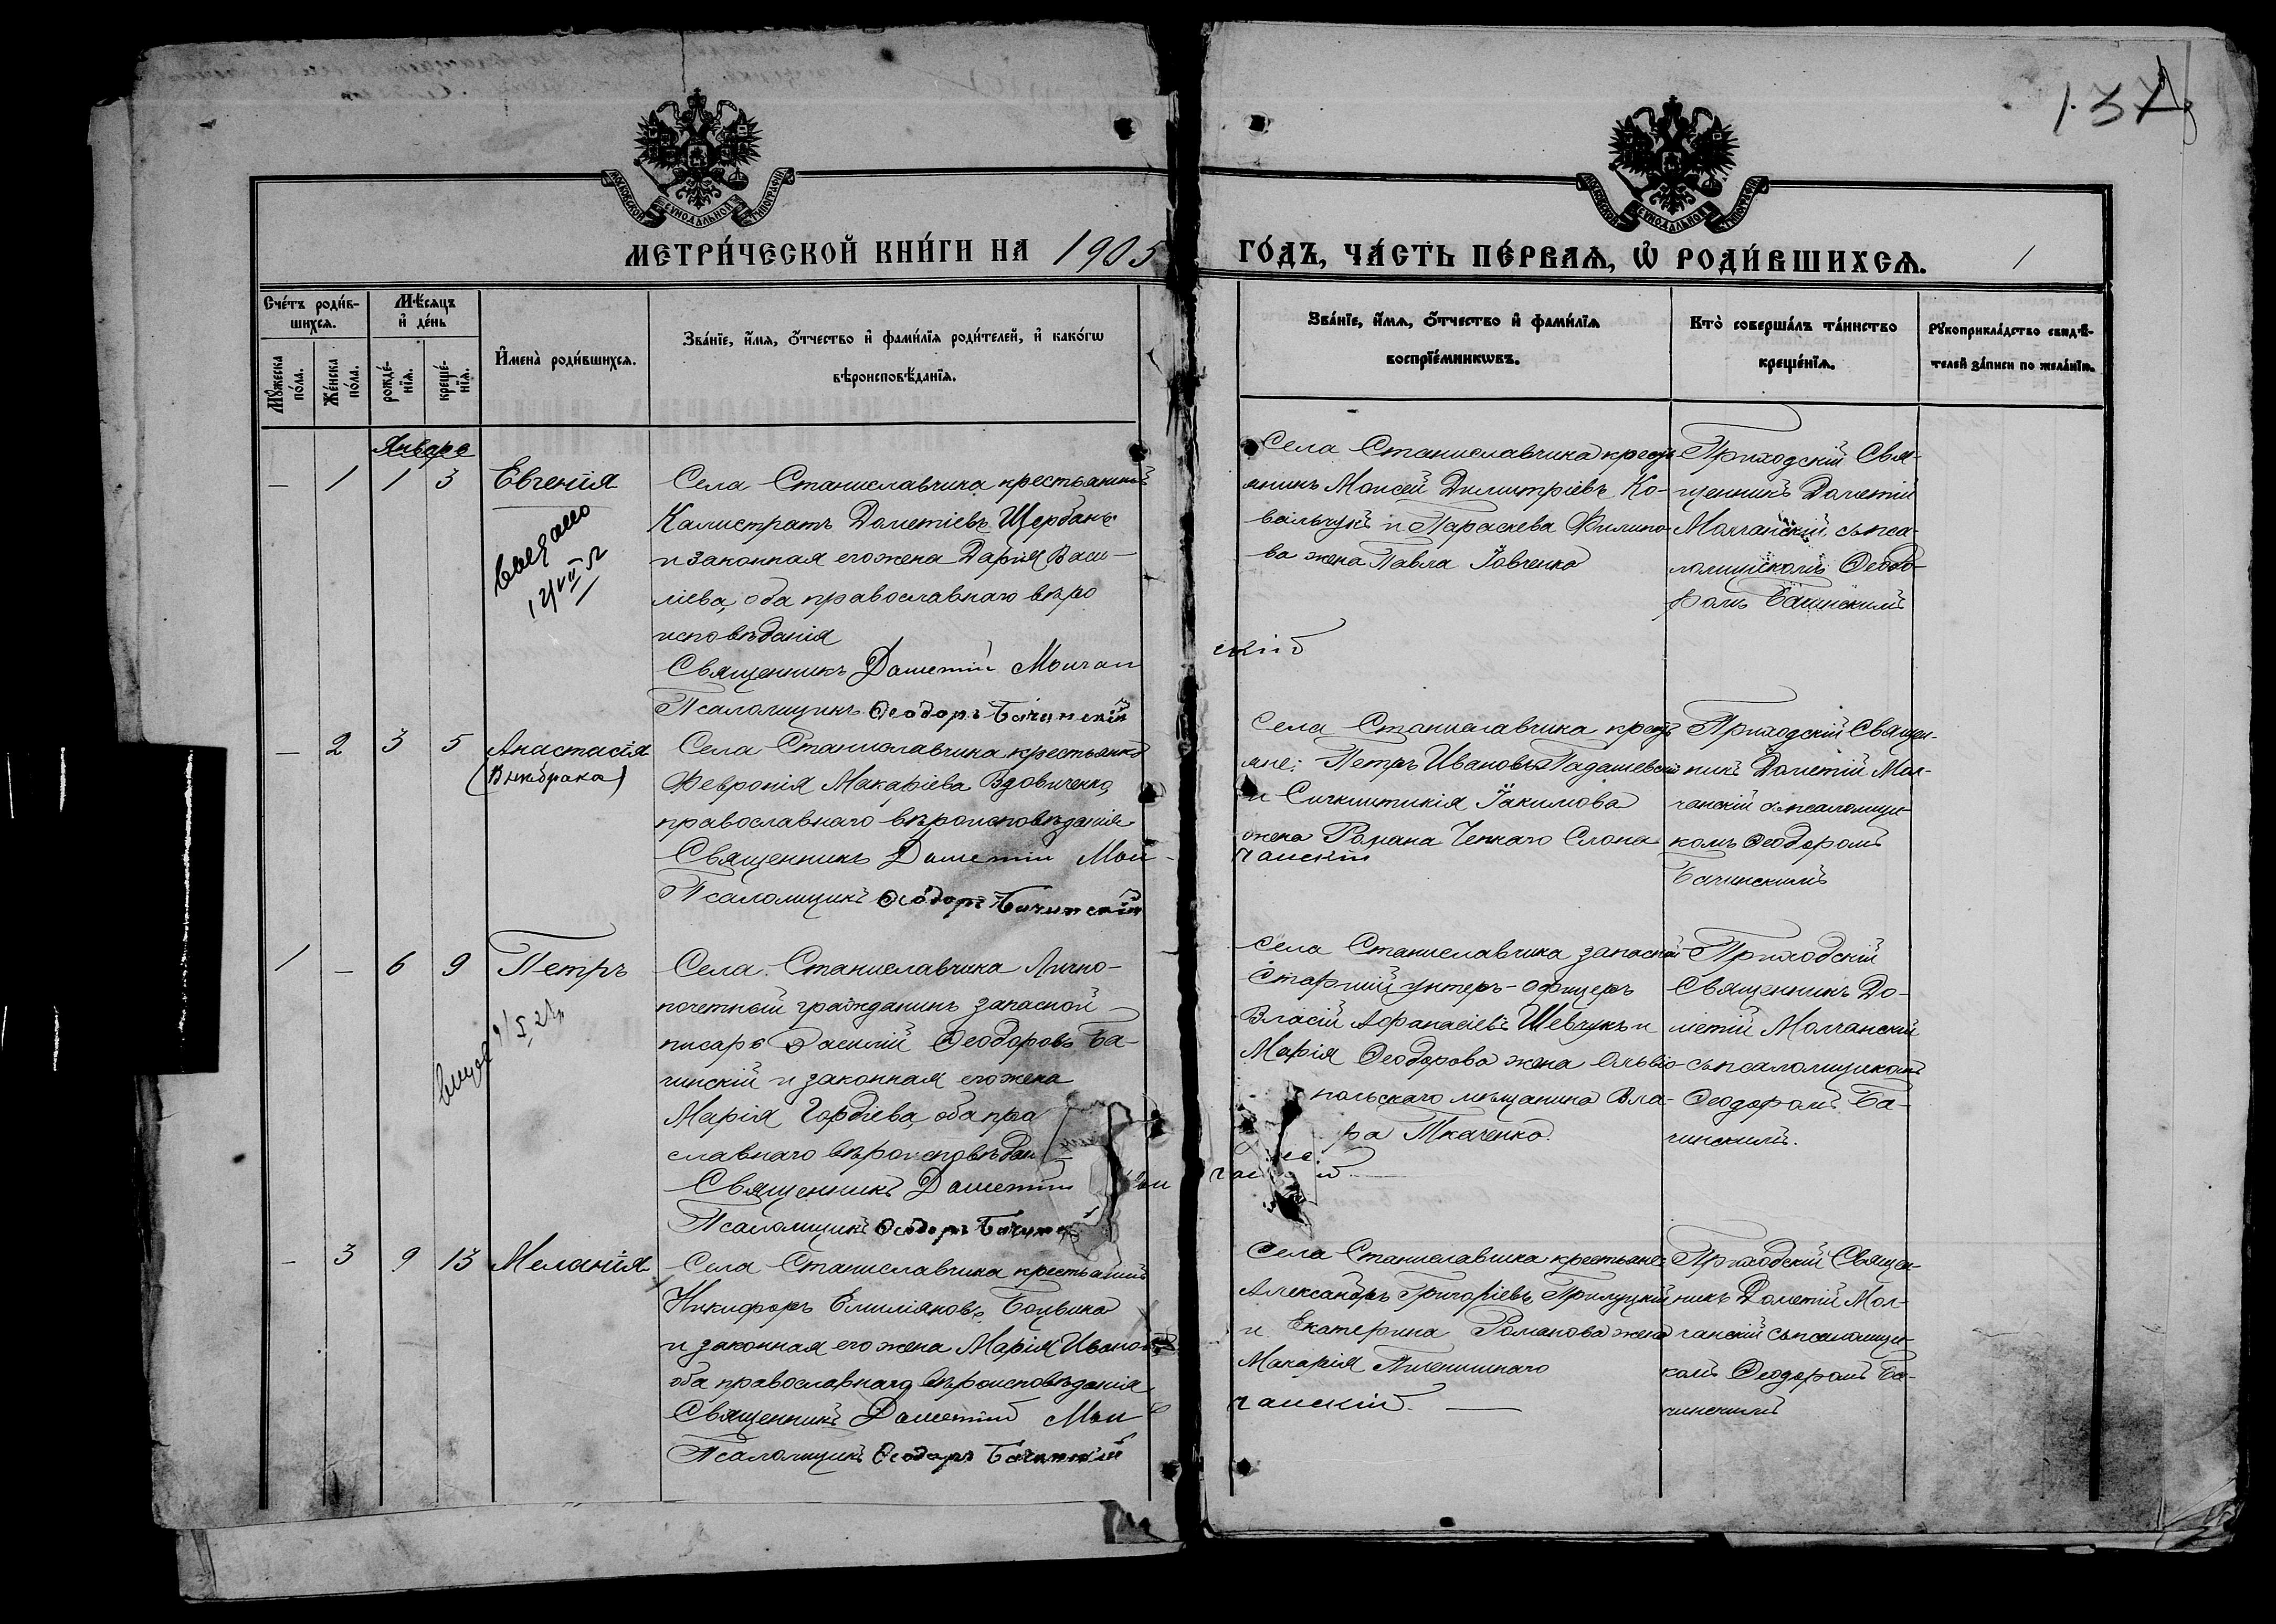 137
МОСКОВСКОЙ СѴНОДАЛЬНОЙ ТИПОГРАФІИ
МОСКОВСКОЙ СѴНОДАЛЬНОЙ ТИПОГРАФІИ
МЕТРИ́ЧЕСКОЙ КНИ́ГИ НА 1905
ГО́ДЪ, ЧА́СТЬ ПЕ́РВАѦ, Ѡ҆ РОДИ́ВШИХСѦ. 1
Сче́тъ роди́в-
шихсѧ.
Мꙋ́жеска по́ла.
Же́нска по́ла.
Мѣ́сѧцъ
и҆ де́нь
рожде́-
нїѧ.
креще́-
нїѧ.
И҆мена̀ роди́вшихсѧ.
Зва́нїе, и҆́мѧ, ѻ҆́тчество и҆ фами́лїѧ роди́телей, и҆ како́гѡ
вѣроисповѣ́данїѧ.
Зва́нїе, и҆́мѧ, ѻ҆́тчество и҆ фами́лїѧ
воспрїе́мникѡвъ.
Кто̀ соверша́лъ та́инство
креще́нїѧ.
Рꙋкоприкла́дство свидѣ́-
телей за́писи по жела́нїю.
Январь
— 1 1 3 Евгенія
Села Станиславчика крестьянинъ
Калистратъ Дометіевъ Щербань
и законная его жена Дарія Васи-
ліева, оба православнаго вѣро
исповѣданія
Священникъ Дометій Молчан
скій
Псаломщикъ Ѳеодоръ Бачинскій
Села Станиславчика кресть
янинъ Моисей Димитріевъ Ко-
вальчукъ и Параскева Филипо-
ва жена Павла Іовченко
Приходскій Свя-
щенникъ Дометій
Молчанскій съ пса-
ломщикомъ Ѳеодо-
ромъ Бачинскимъ
— 2 3 5 Анастасія
(Внѣбрака)
Села Станиславчика крестьянка
Февронія Макаріева Вдовиченко,
православнаго вѣроисповѣданія
Священникъ Дометій Мол-
чанскій
Псаломщикъ Ѳеодоръ Бачинскій
Села Станиславчика кресть
яне: Петръ Ивановъ Гадашевскій
и Синклитикія Іакимова
жена Романа Чепкаго Слона
Приходскій Священ-
никъ Дометій Мол-
чанскій съ псаломщи-
комъ Ѳеодоромъ
Бачинскимъ
1 — 6 9 Петръ
Села Станиславчика Лично-
почетный гражданинъ запасной
писарь Василій Ѳеодоровъ Ба-
чинскій и законная его жена
Марія Гордіева, оба пра
славнаго вѣроисповѣдан
Священникъ Дометій
Псаломщикъ Ѳеодоръ Бачинск
Села Станиславчика запасной
Старшій унтеръ-офицеръ
Власій Афанасіевъ Шевчукъ и
Марія Ѳеодорова жена Ольвіо-
польскаго мѣщанина Вла-
ра Ткаченко.
Приходскій
Священникъ До-
метій Молчанскій
съ псаломщикомъ
Ѳеодоромъ Ба-
чинскимъ.
— 3 9 13 Меланія
Села Станиславчика крестьянинъ
Никифоръ Емиліановъ Боцвина
и законная его жена Марія Иванова
оба православнаго вѣроисповѣданія
Священникъ Дометій Мол
чанскій.
Псаломщикъ Ѳеодоръ Бачинскій
Села Станиславчика крестьяне:
Александръ Григоріевъ Прилуцкій
и Екатерина Романова жена
Макарія Пшеничнаго
Приходскій Священ-
никъ Дометій Мол-
чанскій съ псаломщи-
комъ Ѳеодоромъ Ба-
чинскимъ